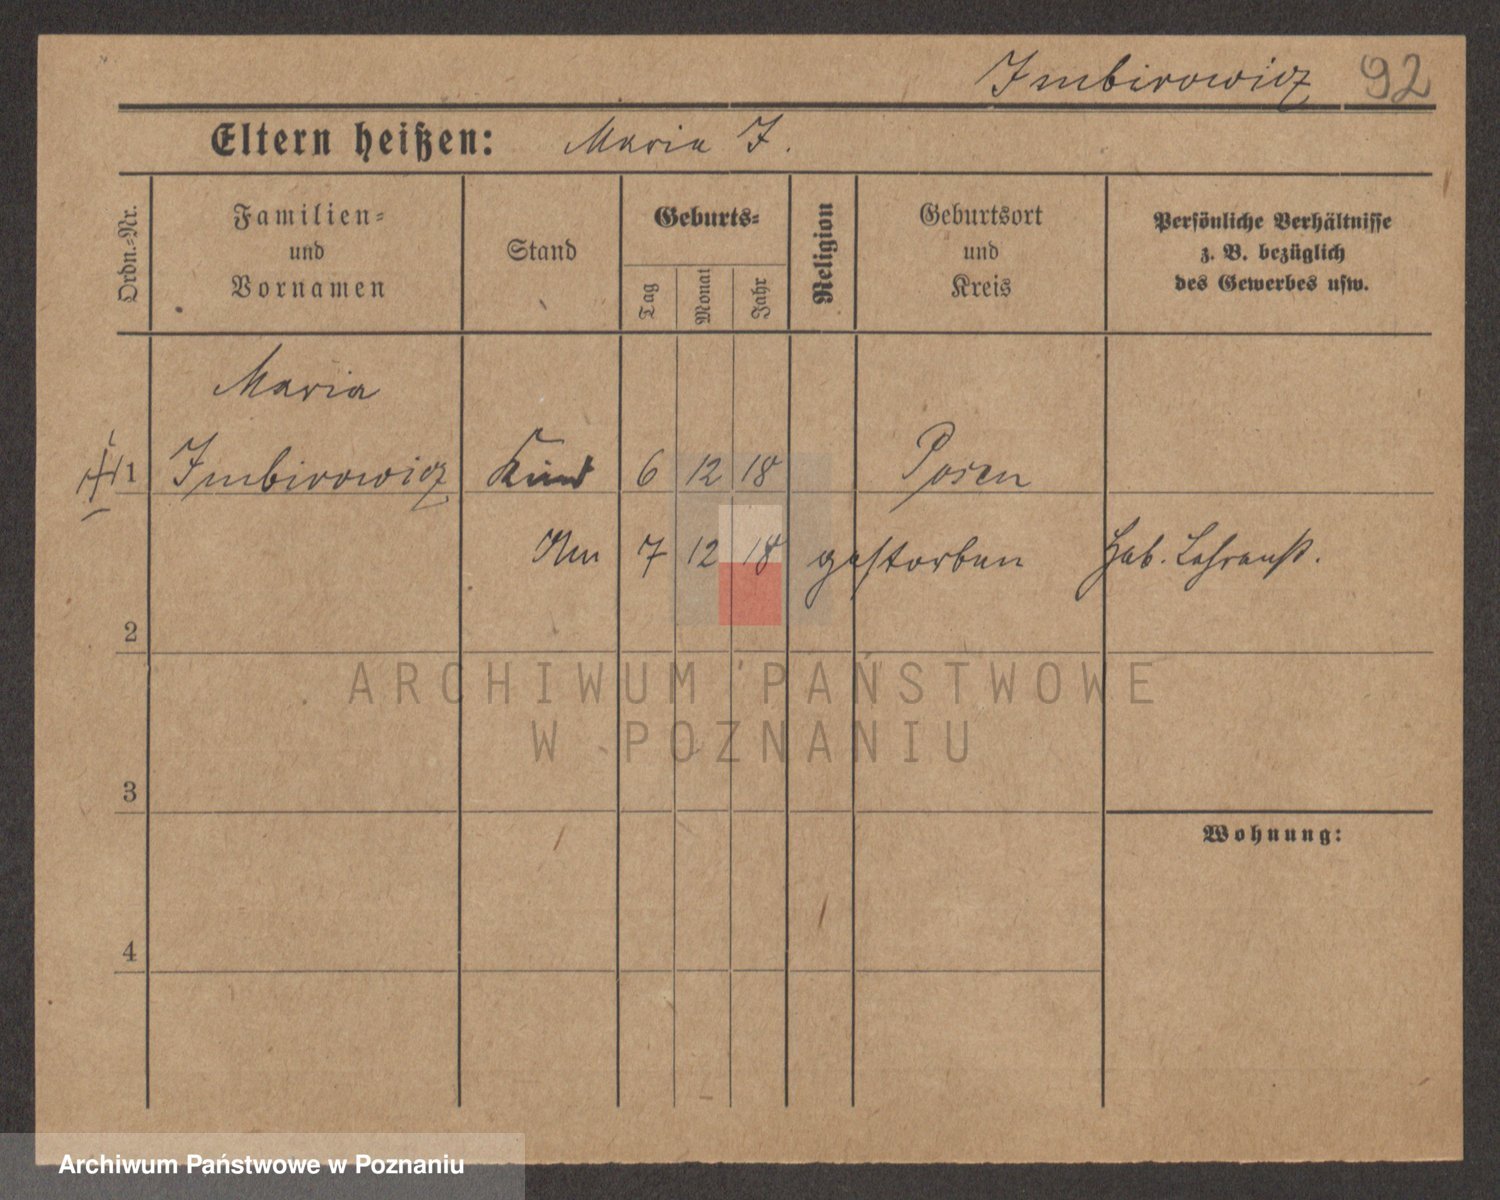 Imbirowicz 92
Eltern heißen: Maria I.
Ordn.-Nr.
Familien-
und
Vornamen
Stand
Geburts-
Tag
Monat
Jahr
Religion
Geburtsort
und
Kreis
Persönliche Verhältnisse
z. B. bezüglich
des Gewerbes usw.
Maria
1 Imbirowicz Kind 6 12 18 Posen
Am 7 12 18 gestorben Heb. Lehranst.
2
ARCHIWUM PAŃSTWOWE
W POZNANIU
3
Wohnung:
4
Archiwum Państwowe w Poznaniu